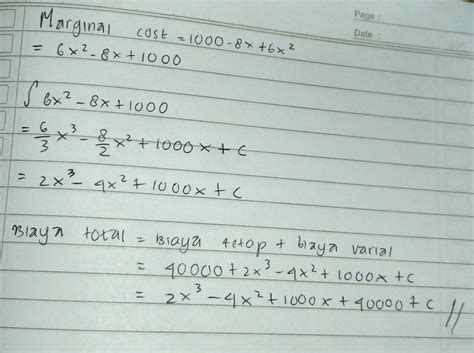 Page :
Date :
Marginal cost = 1000 - 8x + 6x²
= 6x² - 8x + 1000
∫ 6x² - 8x + 1000
= 6/3 x³ - 8/2 x² + 1000x + c
= 2x³ - 4x² + 1000x + c
Biaya total = Biaya tetap + biaya varial
= 40000 + 2x³ - 4x² + 1000x + c
= 2x³ - 4x² + 1000x + 40000 + c //